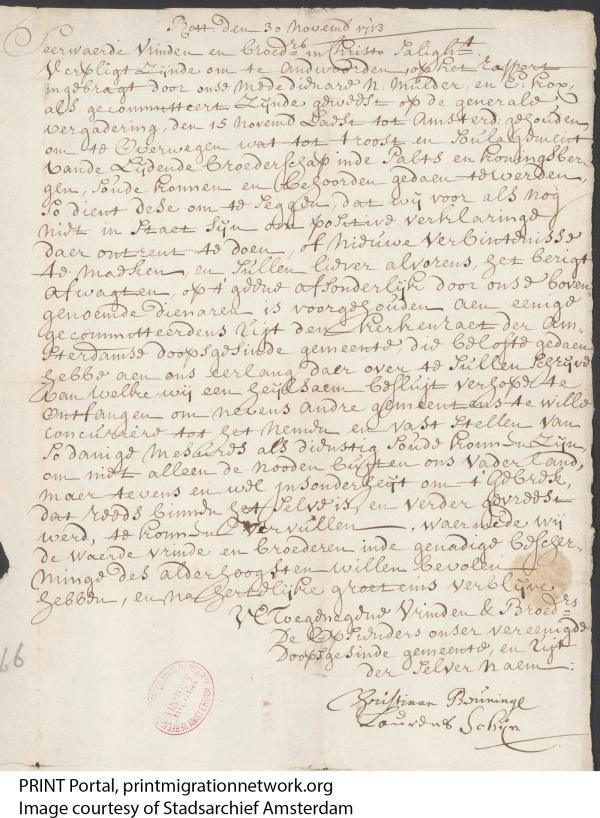 Rott. den 30 Novemb 1713
Seerwaerde Vrinden en Broedrs in Christo Salight
Verpligt Zijnde om te Andwoorden op het rapport
ingebragt door onse mede dienare N: Mulder, en C: Kop,
als gecommitteert Zijnde geweest op de generale
vergadering, den 15 Novemb Laest tot Amsterd: gehouden,
om te Overwegen wat tot troost en Soulagement
vande Lijdende Broederschap inde Palts en Koningsber-
gen, Soude konnen en behoorden gedaen te werden
So dient dese om te Seggen, dat wij voor als nog
niet in Staet Sijn om positive verklaringe
daer ontrent te doen, of Nieuwe Verbintenisse
te maeken, en Sullen liever alvorens, het berigt
afwagten, op 't geene afsonderlijk door onse boven-
genoemde dienaren is voorgehouden aen eenige
gecommitteerdens uijt den Kerkenraet der Am-
sterdamse doopsgesinde gemeente, die belofte gedaen
hebbe aen ons eerlang daer over te Sullen Schrijve
van welke wij een heijlsaem besluijt verhope te
Ontfangen om nevens andre gemeentens te wille
Concurrere tot het nemen en vast Stellen van
Sodanige mesures als dienstig Soude konnen Zijn,
om niet alleen de nooden buijten ons Vaderland,
maer tevens en wel insonderheijt om 't gebrek,
dat reeds binnen het Selve is, en verder gevreest
werd, te konnen vervullen, waermede wij
de waerde vrinde en broederen inde genadige bescher-
minge des alderhoogsten willen bevolen
hebben, en na hertelijke groetenis verblijve
UE Toegenegene Vrinden & Broedrs
De Opsienders onser vereenigde
Doopsgesinde gemeente, en uijt
der Selver Naem:
Christiaan Beuninge
Laurens Schijn
66
PRINT Portal, printmigrationnetwork.org
Image courtesy of Stadsarchief Amsterdam